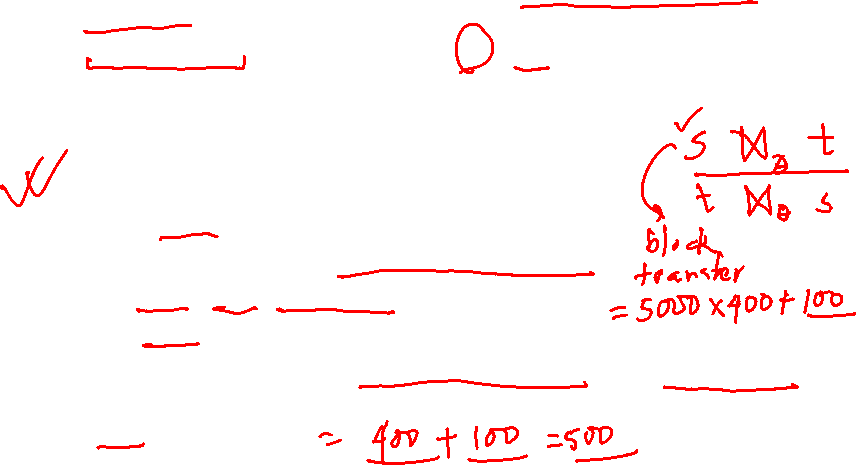 s ⋈θ t
t ⋈θ s
block
transfer
= 5000 × 400 + 100
= 400 + 100 = 500